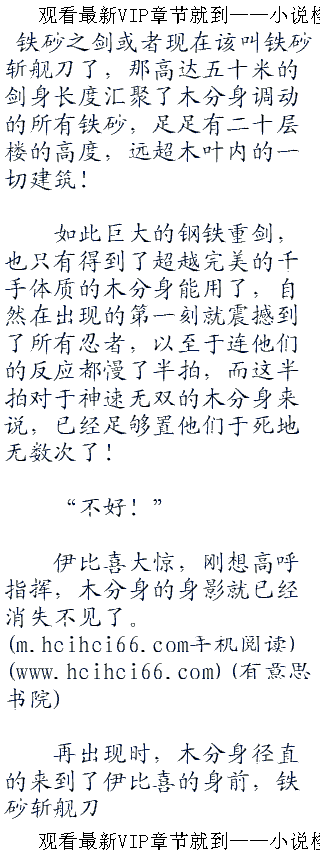 观看最新VIP章节就到——小说检
铁砂之剑或者现在该叫铁砂
斩舰刀了，那高达五十米的
剑身长度汇聚了木分身调动
的所有铁砂，足足有二十层
楼的高度，远超木叶内的一
切建筑！
如此巨大的钢铁重剑，
也只有得到了超越完美的千
手体质的木分身能用了，自
然在出现的第一刻就震撼到
了所有忍者，以至于连他们
的反应都慢了半拍，而这半
拍对于神速无双的木分身来
说，已经足够置他们于死地
无数次了！
“不好！”
伊比喜大惊，刚想高呼
指挥，木分身的身影就已经
消失不见了。
(m.hcihci66.com手机阅读)
(www.hcihci66.com)(有意思
书院)
再出现时，木分身径直
的来到了伊比喜的身前，铁
砂斩舰刀
观看最新VIP章节就到——小说检